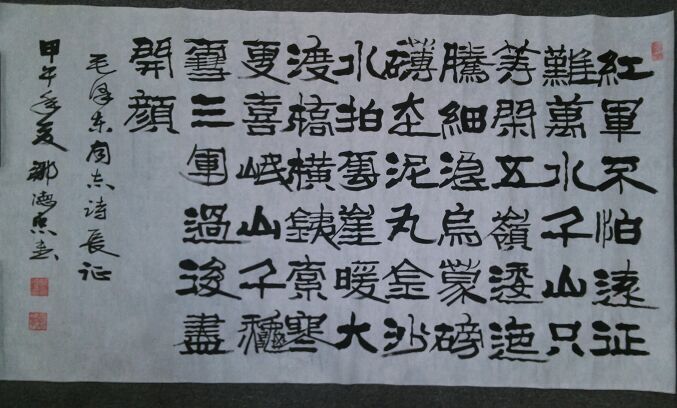 紅軍不怕遠征
難萬水千山只
等閑五嶺逶迤
騰細浪烏蒙磅
礴走泥丸金沙
水拍雲崖暖大
渡橋橫鐵索寒
更喜岷山千
雪三軍過後盡
開顏
毛澤東同志詩長征
甲午年夏